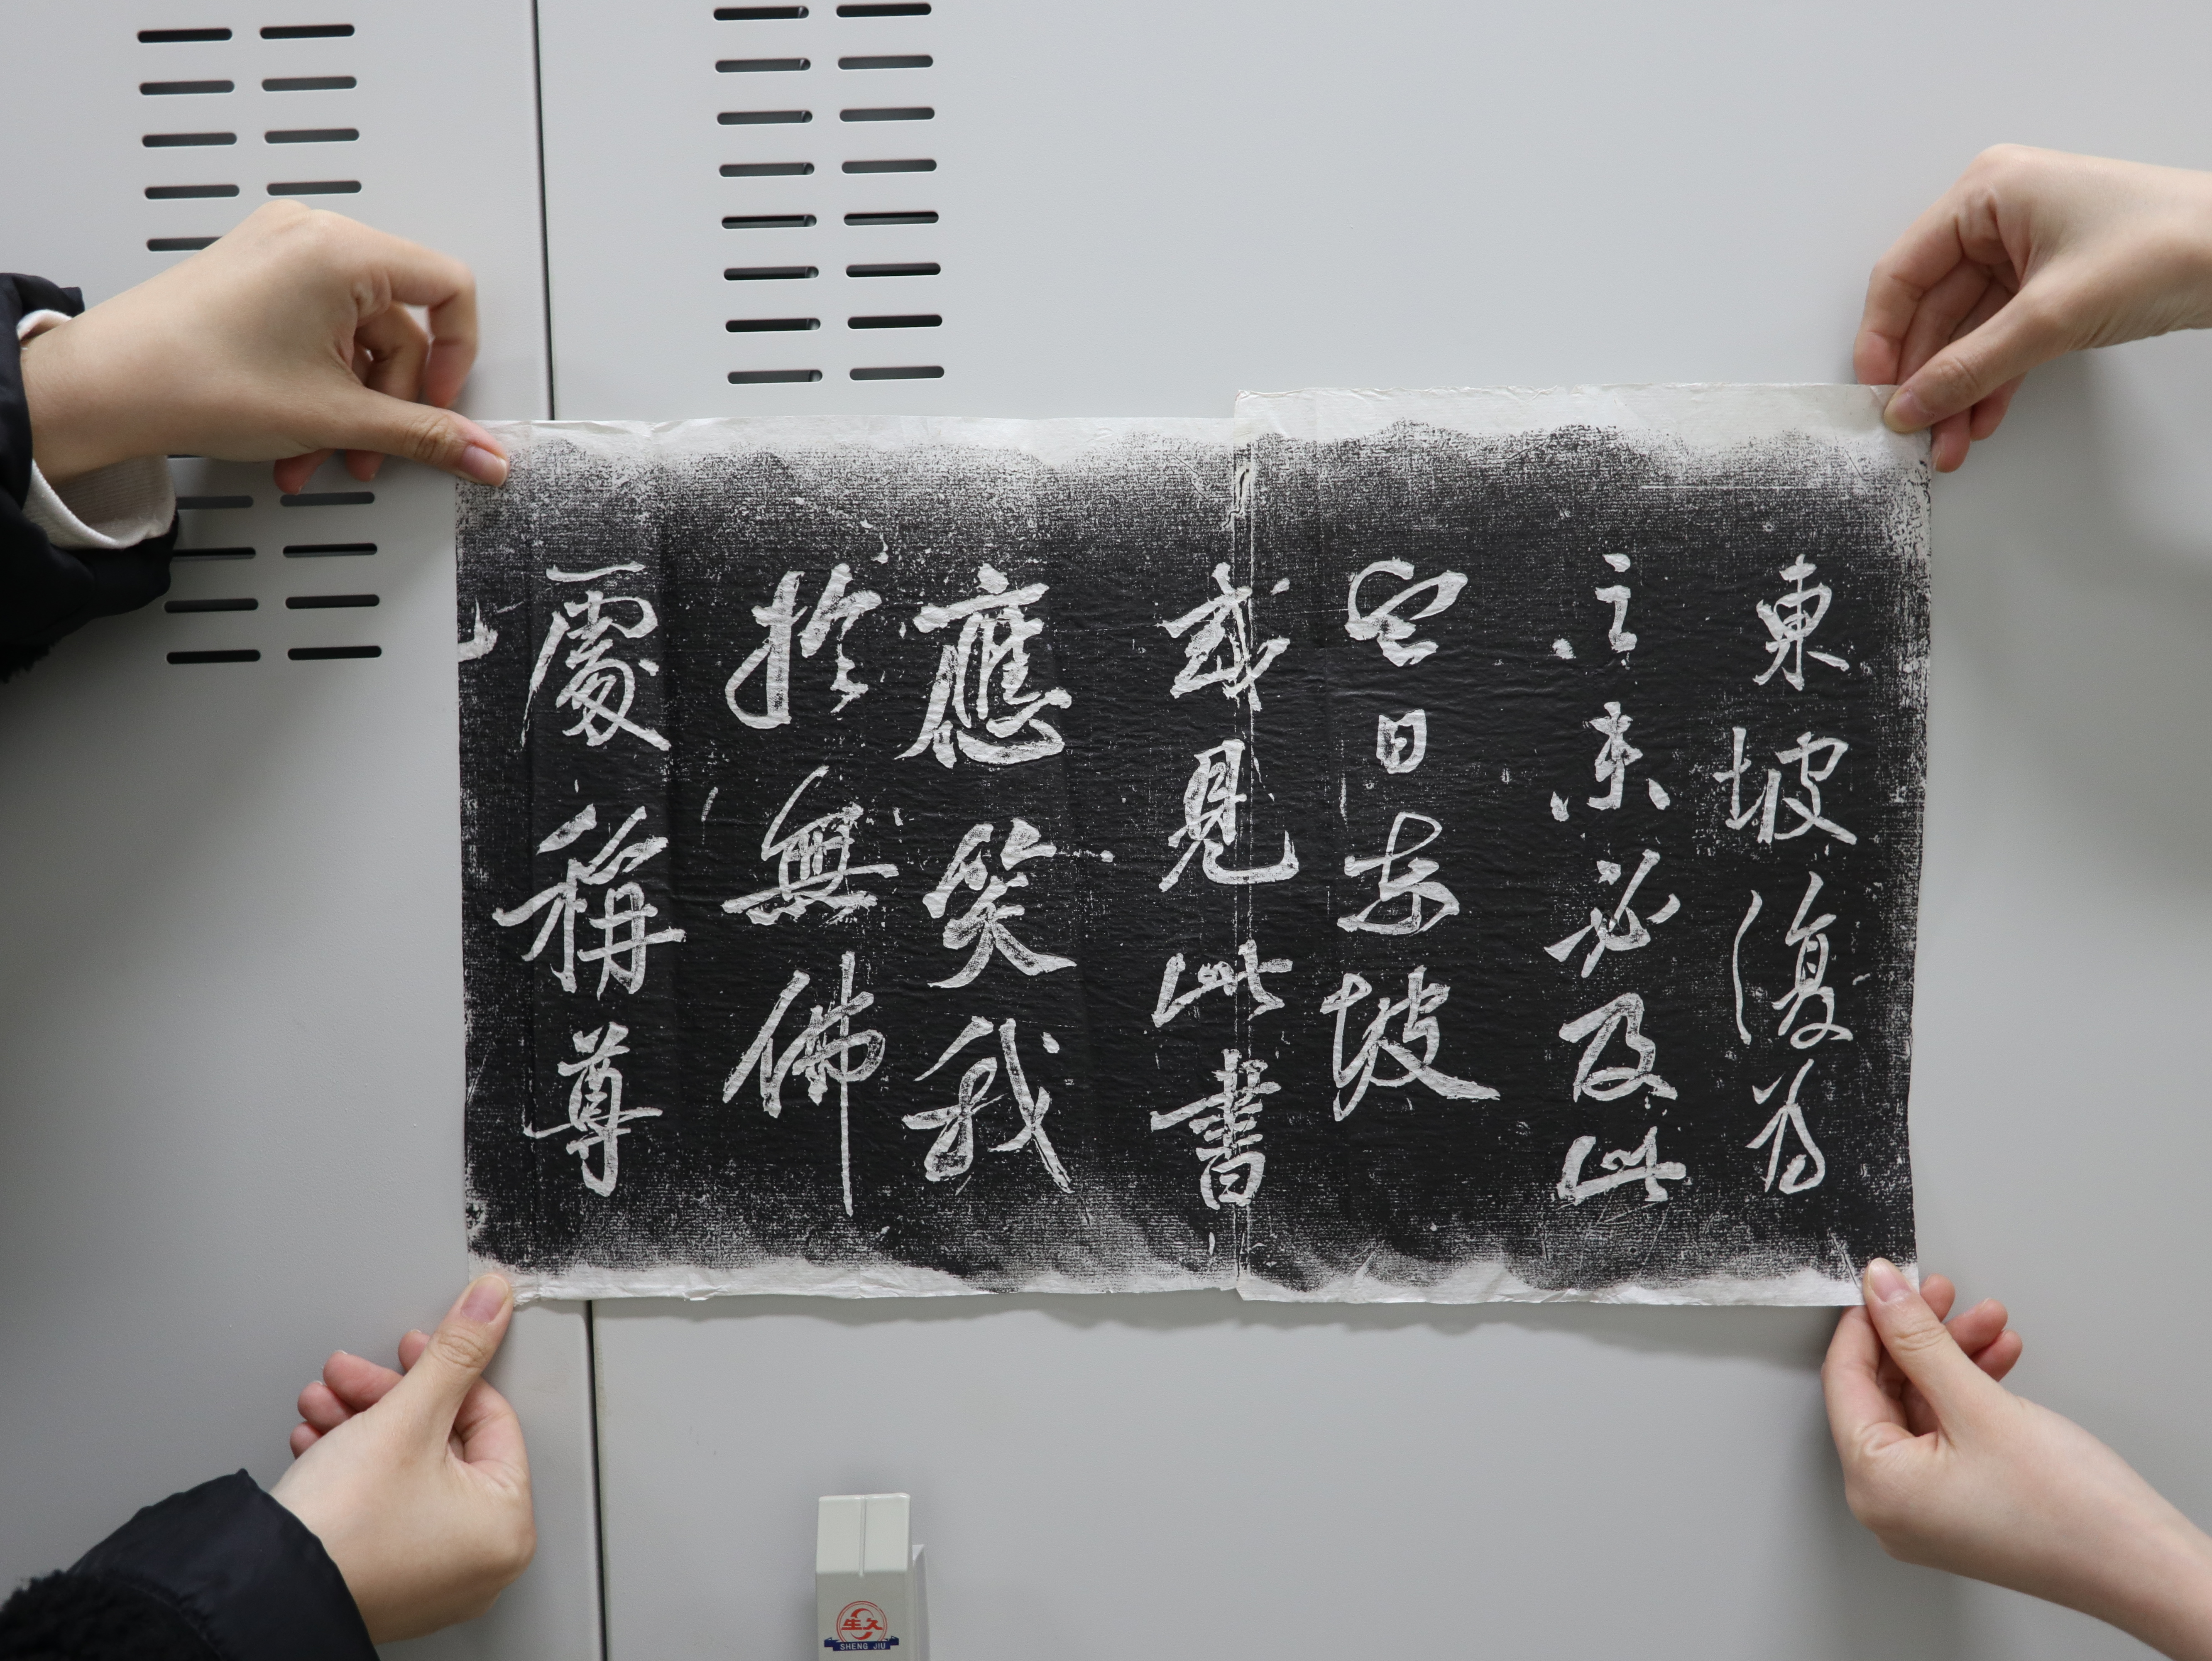 東坡復爲
之未必及此
它日東坡
或見此書
應笑我
於無佛
處稱尊
也
生久
SHENG JIU